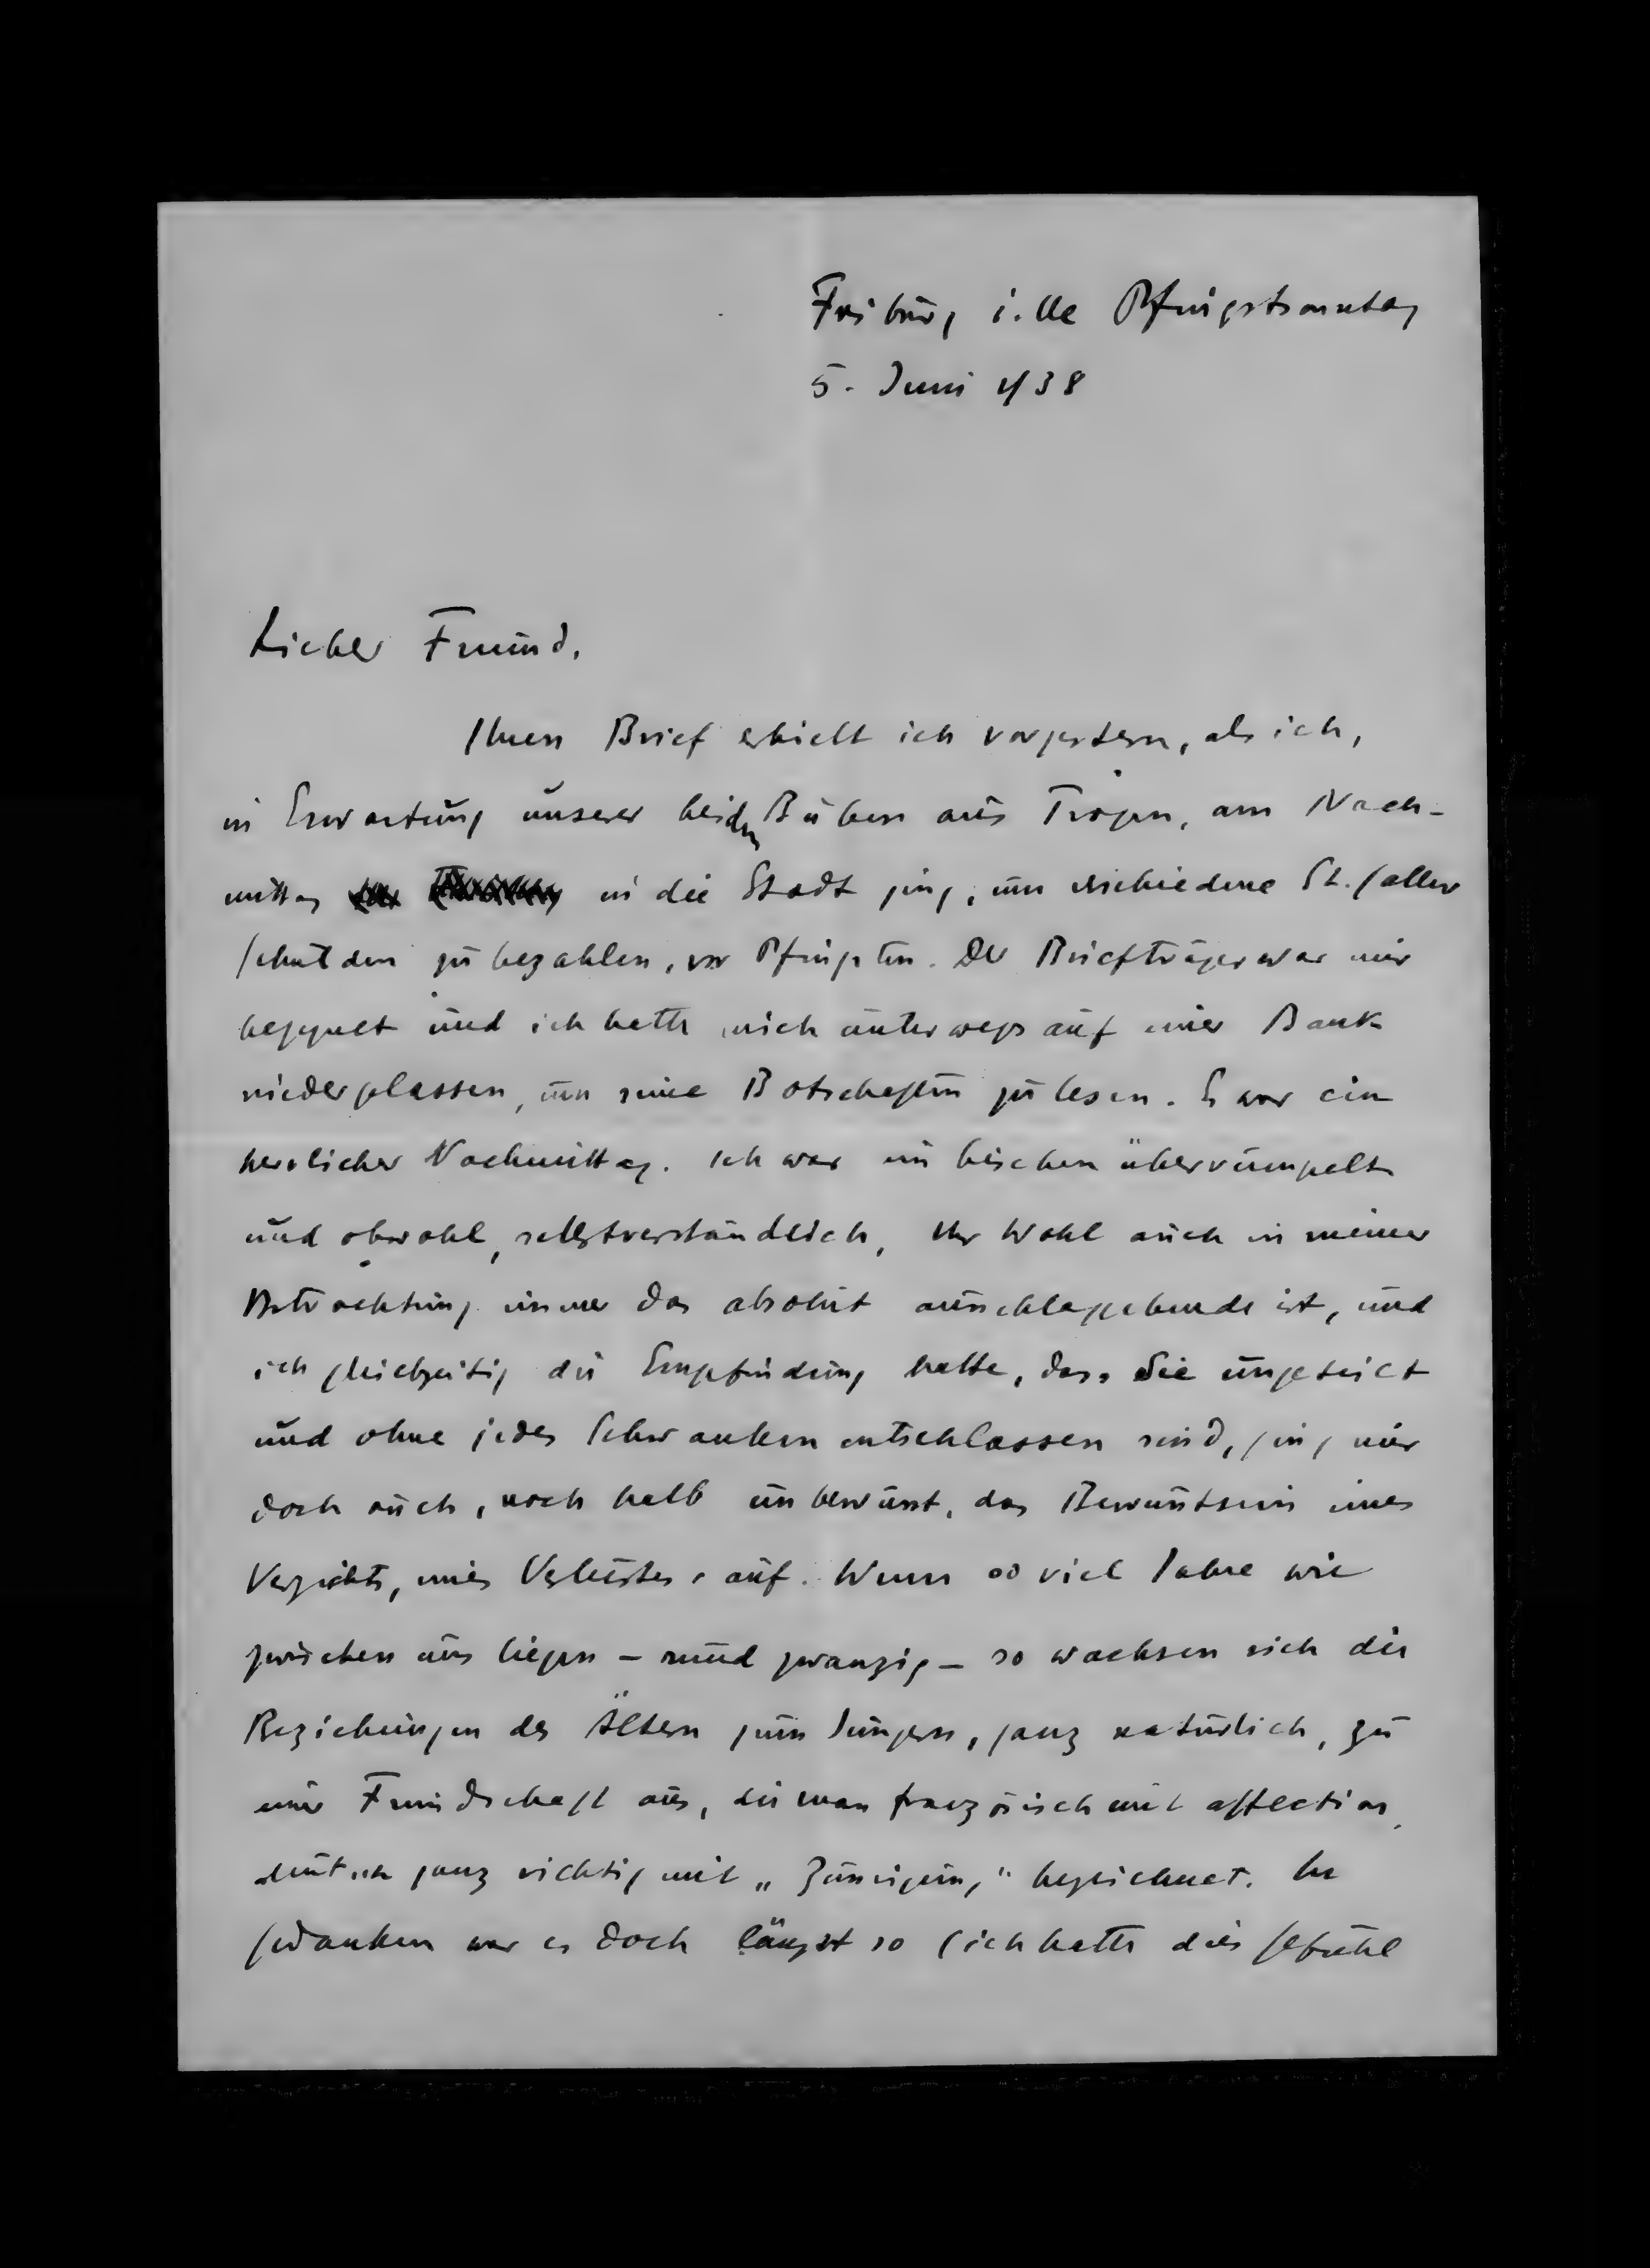 Freiburg i. Ue Pfingstsonntag
5. Juni 1938
Lieber Freund,
Ihren Brief erhielt ich vorgestern, als ich,
in Erwartung unserer beiden Buben aus Trogen, am Nach-
mittag in die Stadt ging, um verschiedene St. Galler
Schulden zu bezahlen, vor Pfingsten. Der Briefträger war mir
begegnet und ich hatte mich unterwegs auf einer Bank
niedergelassen, um seine Botschaften zu lesen. Es war ein
herrlicher Nachmittag. Ich war ein bischen überrumpelt
und obwohl, selbstverständlich, Ihr Wohl auch in meiner
Betrachtung immer das absolut ausschlaggebende ist, und
ich gleichzeitig die Empfindung hatte, dass Sie ungeteilt
und ohne jedes Schwanken entschlossen sind, ging mir
doch auch, noch halb unbewusst, das Bewusstsein eines
Verzichts, eines Verlustes auf. Wenn so viel Jahre wie
zwischen uns liegen – rund zwanzig – so wachsen sich die
Beziehungen des Ältern zum Jüngern, ganz natürlich, zu
einer Freundschaft aus, die man französisch mit affection,
deutsch ganz richtig mit „Zuneigung" bezeichnet. In
Gedanken war es doch längst so (ich hatte dies Gefühl